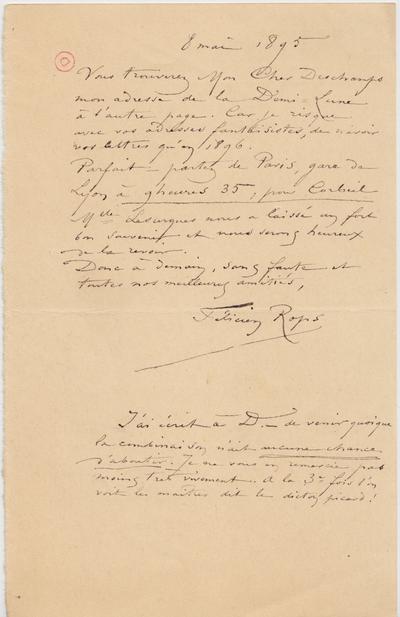 8 mai 1895
Vous trouverez Mon Cher Deschamps
mon adresse de la Demi-Lune
à l'autre page. Car je risque
avec vos adresses fantaisistes, de n'avoir
vos lettres qu'en 1896.
Parfait – partez de Paris, gare de
Lyon à 9 heures 35, pour Corbeil
Mlle Lesurgues nous a laissé un fort
bon souvenir et nous serons heureux
de la revoir.
Donc à demain, sans faute et
toutes nos meilleures amitiés,
Félicien Rops
J'ai écrit à D.– de venir quoique
la combinaison n'ait aucune chance
d'aboutir. Je ne vous en remercie pas
moins très vivement. A la 3me fois l'on
voit les maîtres dit le dicton picard!